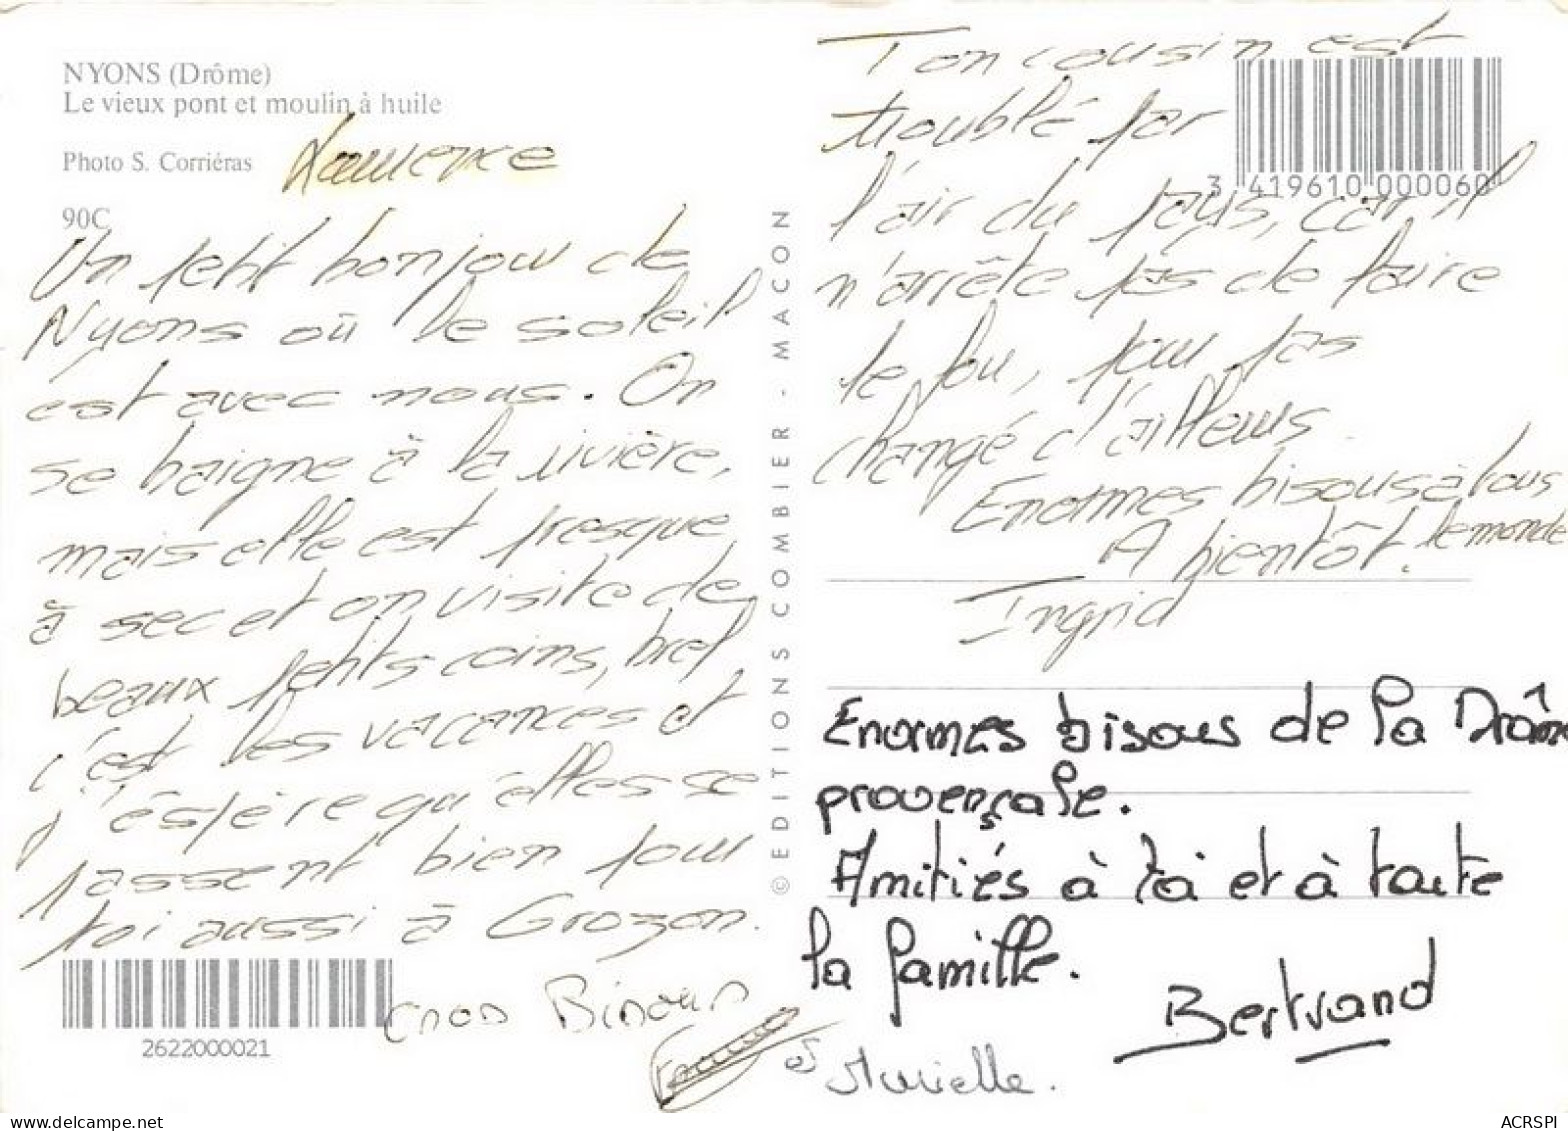 NYONS (Drôme)
Le vieux pont et moulin à huile
Photo S. Corriéras
90C
Laurence
Un petit bonjour de
Nyons où le soleil
est avec nous. On
se baigne à la rivière,
mais elle est presque
à sec et on visite de
beaux petits coins, bref
c'est les vacances et
j'éspère qu'elles se
passent bien pour
toi aussi à Grozon.
2622000021
Gros Bisous
et Murielle.
© EDITIONS COMBIER - MACON
3 419610 000060
Ton cousin est
troublé par
l'air du pays, car il
n'arrête pas de faire
le fou, pour pas
changé d'ailleurs
Enormes bisous à tous
le monde
A bientôt.
Ingrid
Enormes bisous de la Drôme
provençale.
Amitiés à toi et à toute
la famille.
Bertrand
ACRSPI